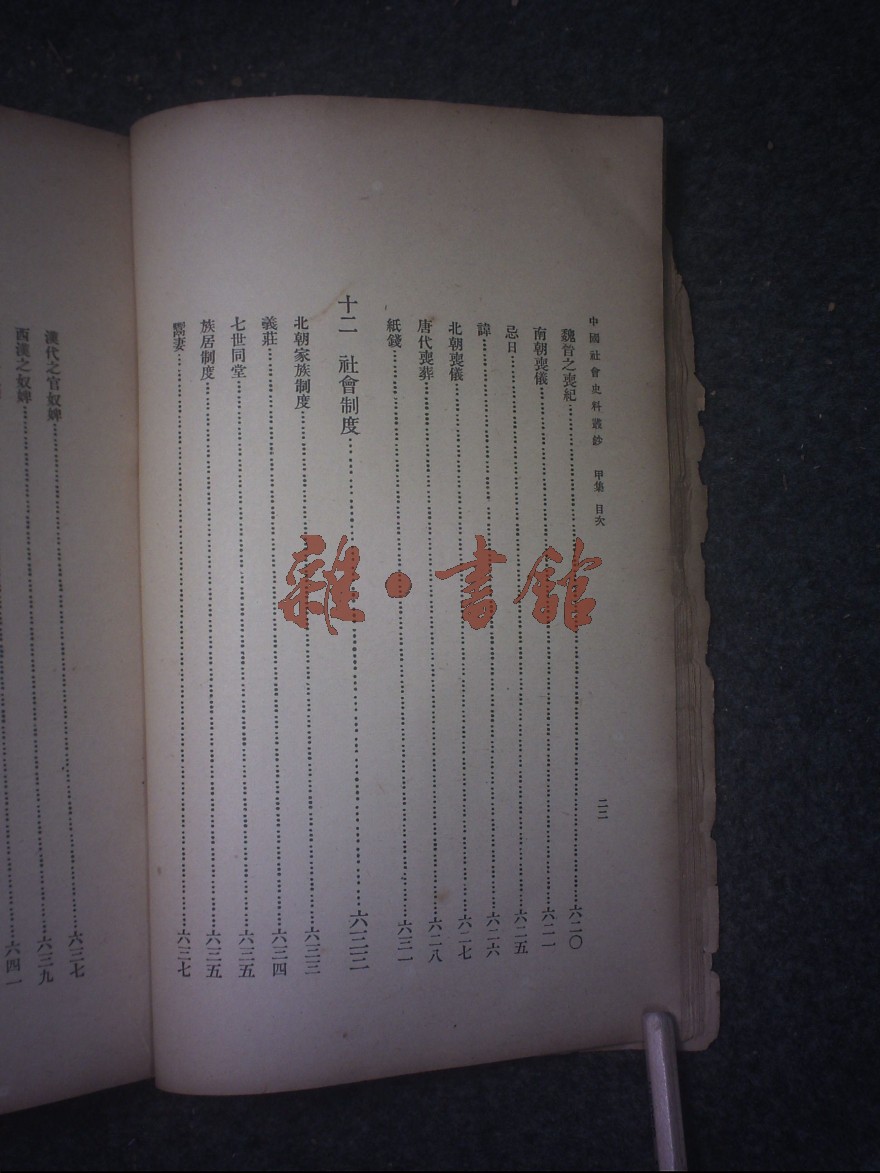 中國社會史料叢鈔 甲集 目次
二二
魏晉之喪紀……六二〇
南朝喪儀……六二一
忌日……六二五
諱……六二六
北朝喪儀……六二七
唐代喪葬……六二八
紙錢……六三一
十二 社會制度……六三三
北朝家族制度……六三三
義莊……六三四
七世同堂……六三五
族居制度……六三五
鬻妻……六三七
漢代之官奴婢……六三七
西漢之奴婢……六三九
六四一
雜·書館